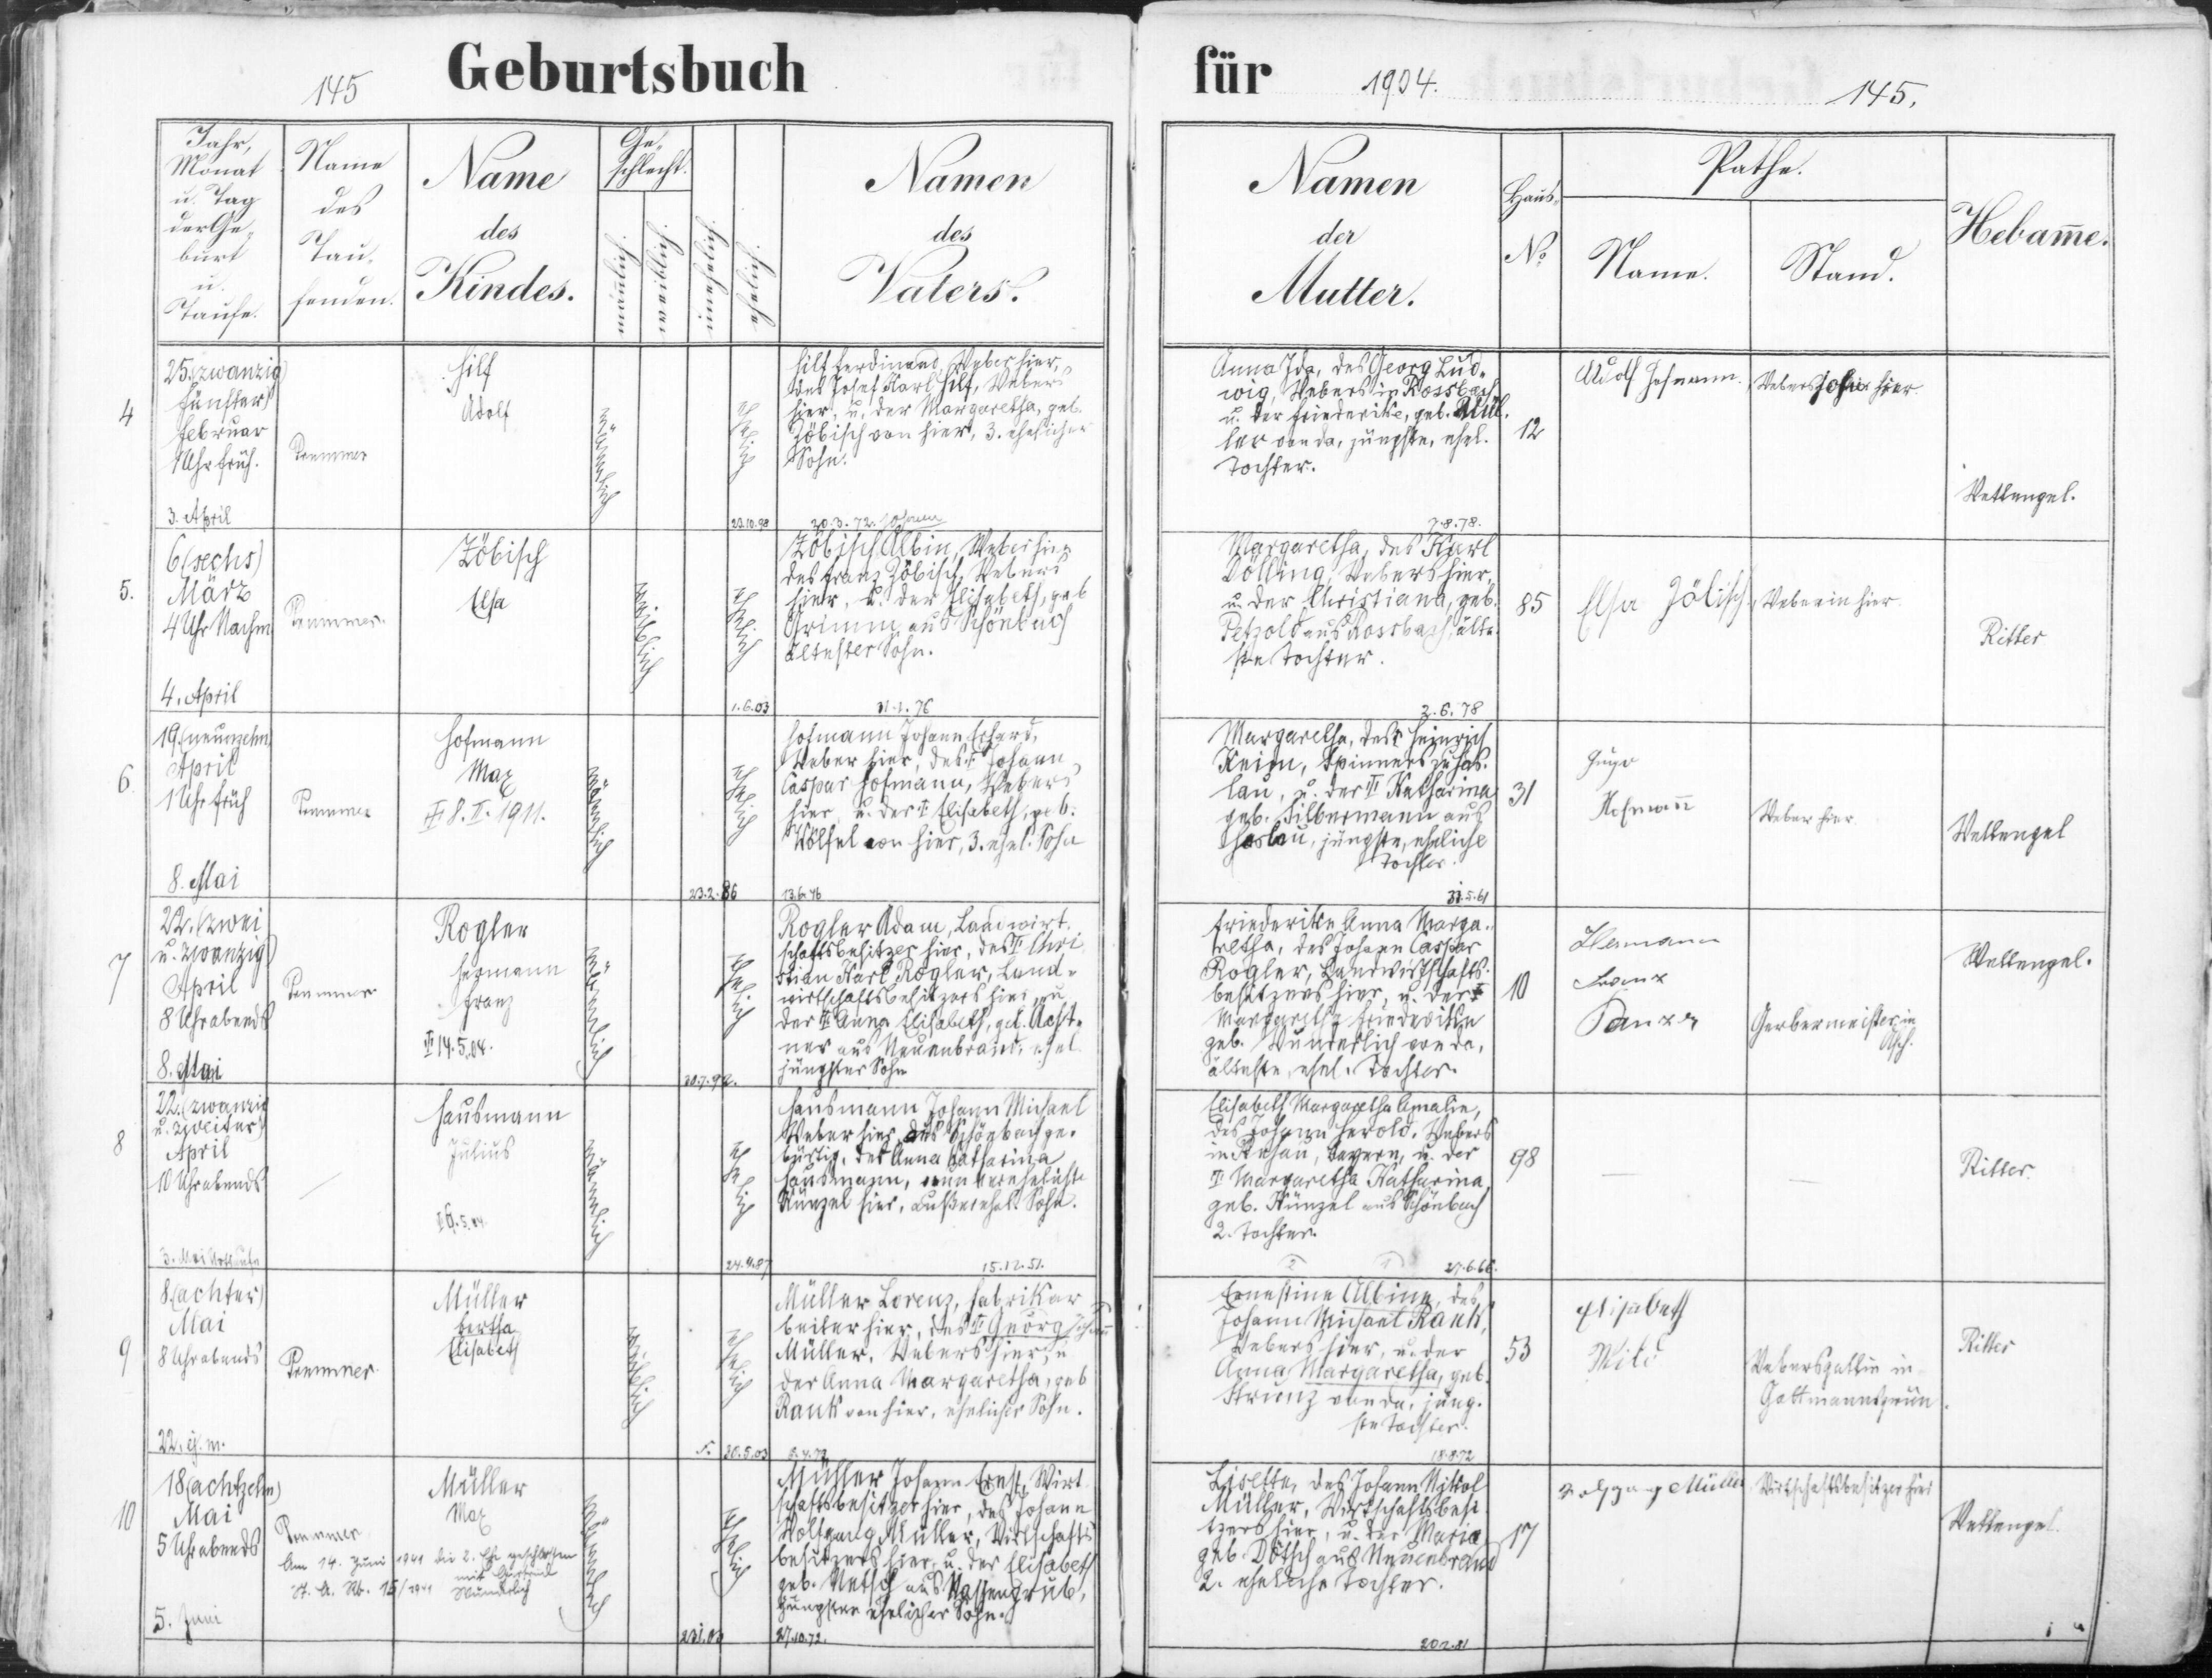 145
Geburtsbuch
für
1904.
145.
Jahr,
Monat
u. Tag
der Ge-
burt
u.
Taufe.
Name
des
Tau-
fenden.
Name
des
Kindes.
Ge-
schlecht.
männlich.
weiblich.
unehelich.
ehelich.
Namen
des
Vaters.
Namen
der
Mutter.
Haus-
No
Pathe.
Name.
Stand.
Hebamme.
4
25. (zwanzig
fünfter)
Februar
1 Uhr früh.
3. April
Hilf
Adolf
männlich
ehelich
23.10.98
Hilf Ferdinand, Weber hier,
des Josef Karl Hilf, Webers
hier, u. der Margaretha, geb.
Zöbisch von hier, 3. ehelicher
Sohn.
20.3.72.
Anna Ida, des Georg Lud-
wig, Webers in Rossbach
u. der Friederike, geb. Mül-
ler von da, jüngste, ehel.
Tochter.
7.8.78.
12
Adolf Hofmann.
Webers hier
Wettengel.
5.
6 (sechs)
März
4 Uhr Nachm
4. April
Zöbisch
Elsa
weiblich
ehelich
1.6.03
Zöbisch Albin, Weber hier
des Franz Zöbisch, Webers
hier, u. der Elisabeth, geb
Grimm aus Schönbach
ältester Sohn.
31.1.76
Margaretha, des Karl
Dölling, Webers hier,
u. der Christiana, geb.
Petzold aus Rossbach, älte-
ste Tochter.
2.6.78
85
Elsa Zöbisch,
Weberin hier.
Ritter
6.
19. (neunzehn)
April
1 Uhr früh
8. Mai
Hofmann
Max
8. II. 1911.
männlich
ehelich
23.2.86
Hofmann Johann Erhard,
Weber hier, des Johann
Caspar Hofmann, Webers
hier u. der Elisabeth, geb.
Wölfel von hier, 3. ehel. Sohn
Margaretha, des Heinrich
Keim, Spinners zu Has-
lau, u. der Katharina
geb. Silbermann aus
Haslau, jüngste, eheliche
Tochter.
31.5.61
31
Hugo
Hofmann
Weber hier
Wettengel
7
22. (zwei
u. zwanzig)
April
8 Uhr abends
8. Mai
Rogler
Hermann
Franz
14.5.04.
männlich
ehelich
Rogler Adam, Landwirt-
schaftsbesitzer hier, des Chri
stian Karl Rogler, Land-
wirtschaftsbesitzers hier, u
der Anna Elisabeth, geb. Acht-
ner aus Neuenbrand, ehel
jüngster Sohn
Friederike Anna Marga-
retha, des Johann Caspar
Rogler, Landwirtschafts-
besitzers hier, u. der
Margaretha Friederike
geb. Wunderlich von da,
älteste, ehel. Tochter.
10
Hermann
Franz
Panzer
Gerbermeister in
Asch.
Wettengel.
8
22. (zwanzig
u. zweiter)
April
10 Uhr abends
3. Mai Nottaufe
Hausmann
Julius
männlich
ehelich
Hausmann Johann Michael
Weber hier, aus Schönbach ge-
bürtig, der Anna Katharina
Hausmann, nun verehelichte
Künzel hier, außerehel. Sohn.
15.12.51.
Elisabeth Margaretha Amalie,
des Johann Herold, Webers
in Rehau, Bayern, u. der
Margaretha Katharina,
geb. Künzel aus Schönbach
2. Tochter.
98
Ritter.
9
8 (achter)
Mai
8 Uhr abends
22. ej. m.
Müller
Bertha
Elisabeth
weiblich
ehelich
20.5.03
Müller Lorenz, Fabrikar
beiter hier, des Georg Johann
Müller, Webers hier, u
der Anna Margaretha, geb
Rank von hier, ehelicher Sohn.
Ernestine Albine, des
Johann Michael Rank,
Webers hier, u. der
Anna Margaretha, geb.
Strunz von da, jüng-
ste Tochter.
18.8.72
53
Elisabeth
Webersgattin in
Gottmannsgrün.
Ritter
10
18 (achtzehn)
Mai
5 Uhr abends
5. Juni
Am 14. Juni 1941 die 2. Ehe geschlossen
mit
Wunderlich
15/1941
Müller
Max
männlich
ehelich
Müller Johann Ernst, Wirt
schaftsbesitzer hier, des Johann
Wolfgang Müller, Wirtschafts
besitzers hier, u. der Elisabeth
geb. Netsch aus
jüngster ehelicher Sohn.
27.10.72.
Lisette, des Johann Nikol
Müller, Wirtschaftsbesi
tzers hier, u. der Maria
geb. Dötsch aus Neuenbrand
2. eheliche Tochter.
20.2.81
17
Wolfgang Müller
Wirtschaftsbesitzer hier
Wettengel.